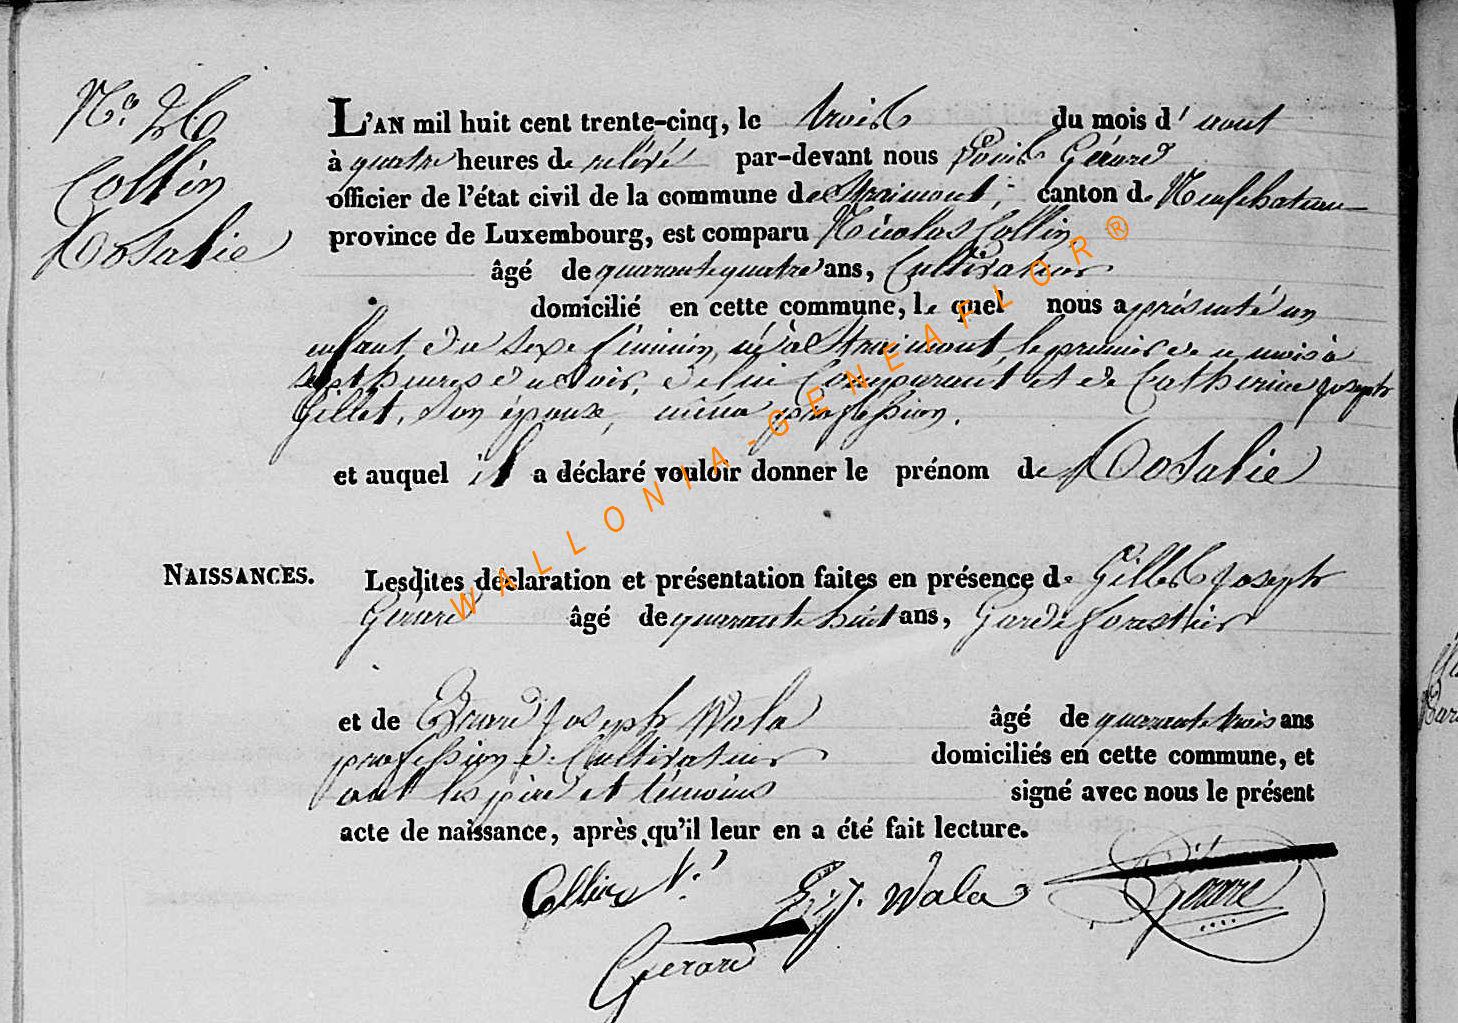 N.° 26
Collin
Rosalie
L'AN mil huit cent trente-cinq, le trois du mois d' aout
à quatre heures de relévé par-devant nous Louis Gérard
officier de l'état civil de la commune de Straimont, canton de Neufchateau
province de Luxembourg, est comparu Nicolas Collin,
âgé de quarante quatre ans, Cultivateur
domicilié en cette commune, le quel nous a présenté un
enfant du sexe féminin, né à Straimont, le premier de ce mois à
sept heures du soir, de lui Comparant et de Catherine Joseph
Gillet, son épouse, même profession.
et auquel il a déclaré vouloir donner le prénom de Rosalie
NAISSANCES.
Lesdites déclaration et présentation faites en présence de Gilles Joseph
Gérard âgé de quarante huit ans, Garde forestier
et de Erard Joseph Wala âgé de quarante trois ans
profession de Cultivateur domiciliés en cette commune, et
ont les père et témoins signé avec nous le présent
acte de naissance, après qu'il leur en a été fait lecture.
Collin N. E. J. Wala Gérard
Gerard
WALLONIA-GENEAFLOR®